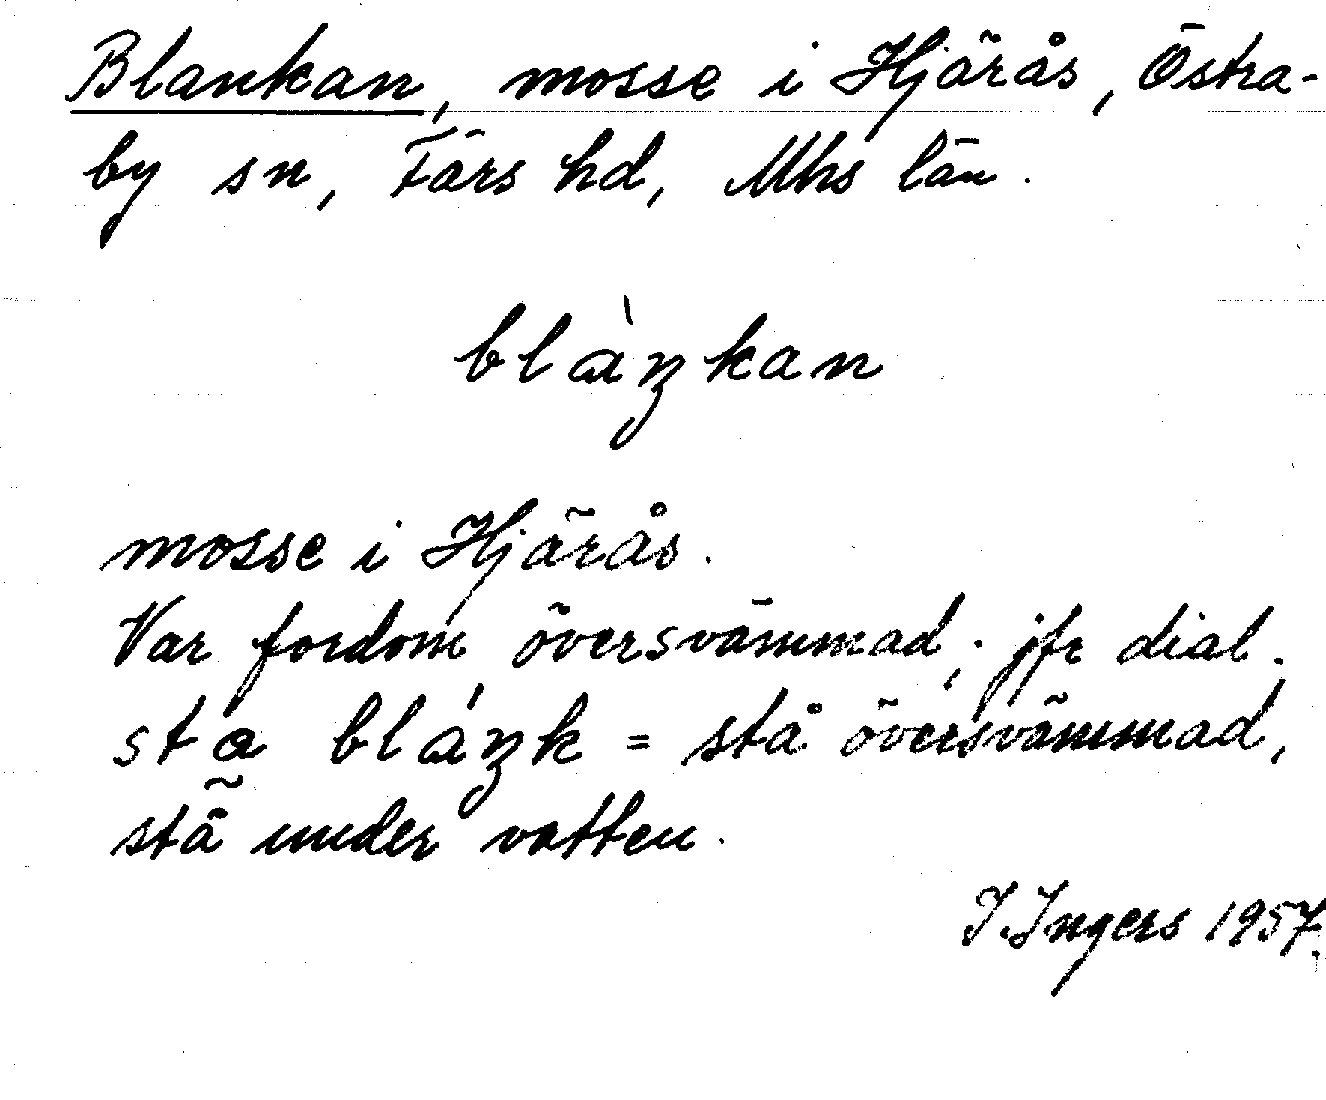 Blankan, mosse i Hjärås, Östra-
by sn, Färs hd, Mhs län.
blàŋkan
mosse i Hjärås.
Var fordom översvämmad; jfr dial.
sta bláŋk = stå översvämmad,
stå under vatten.
I. Ingers 1957.